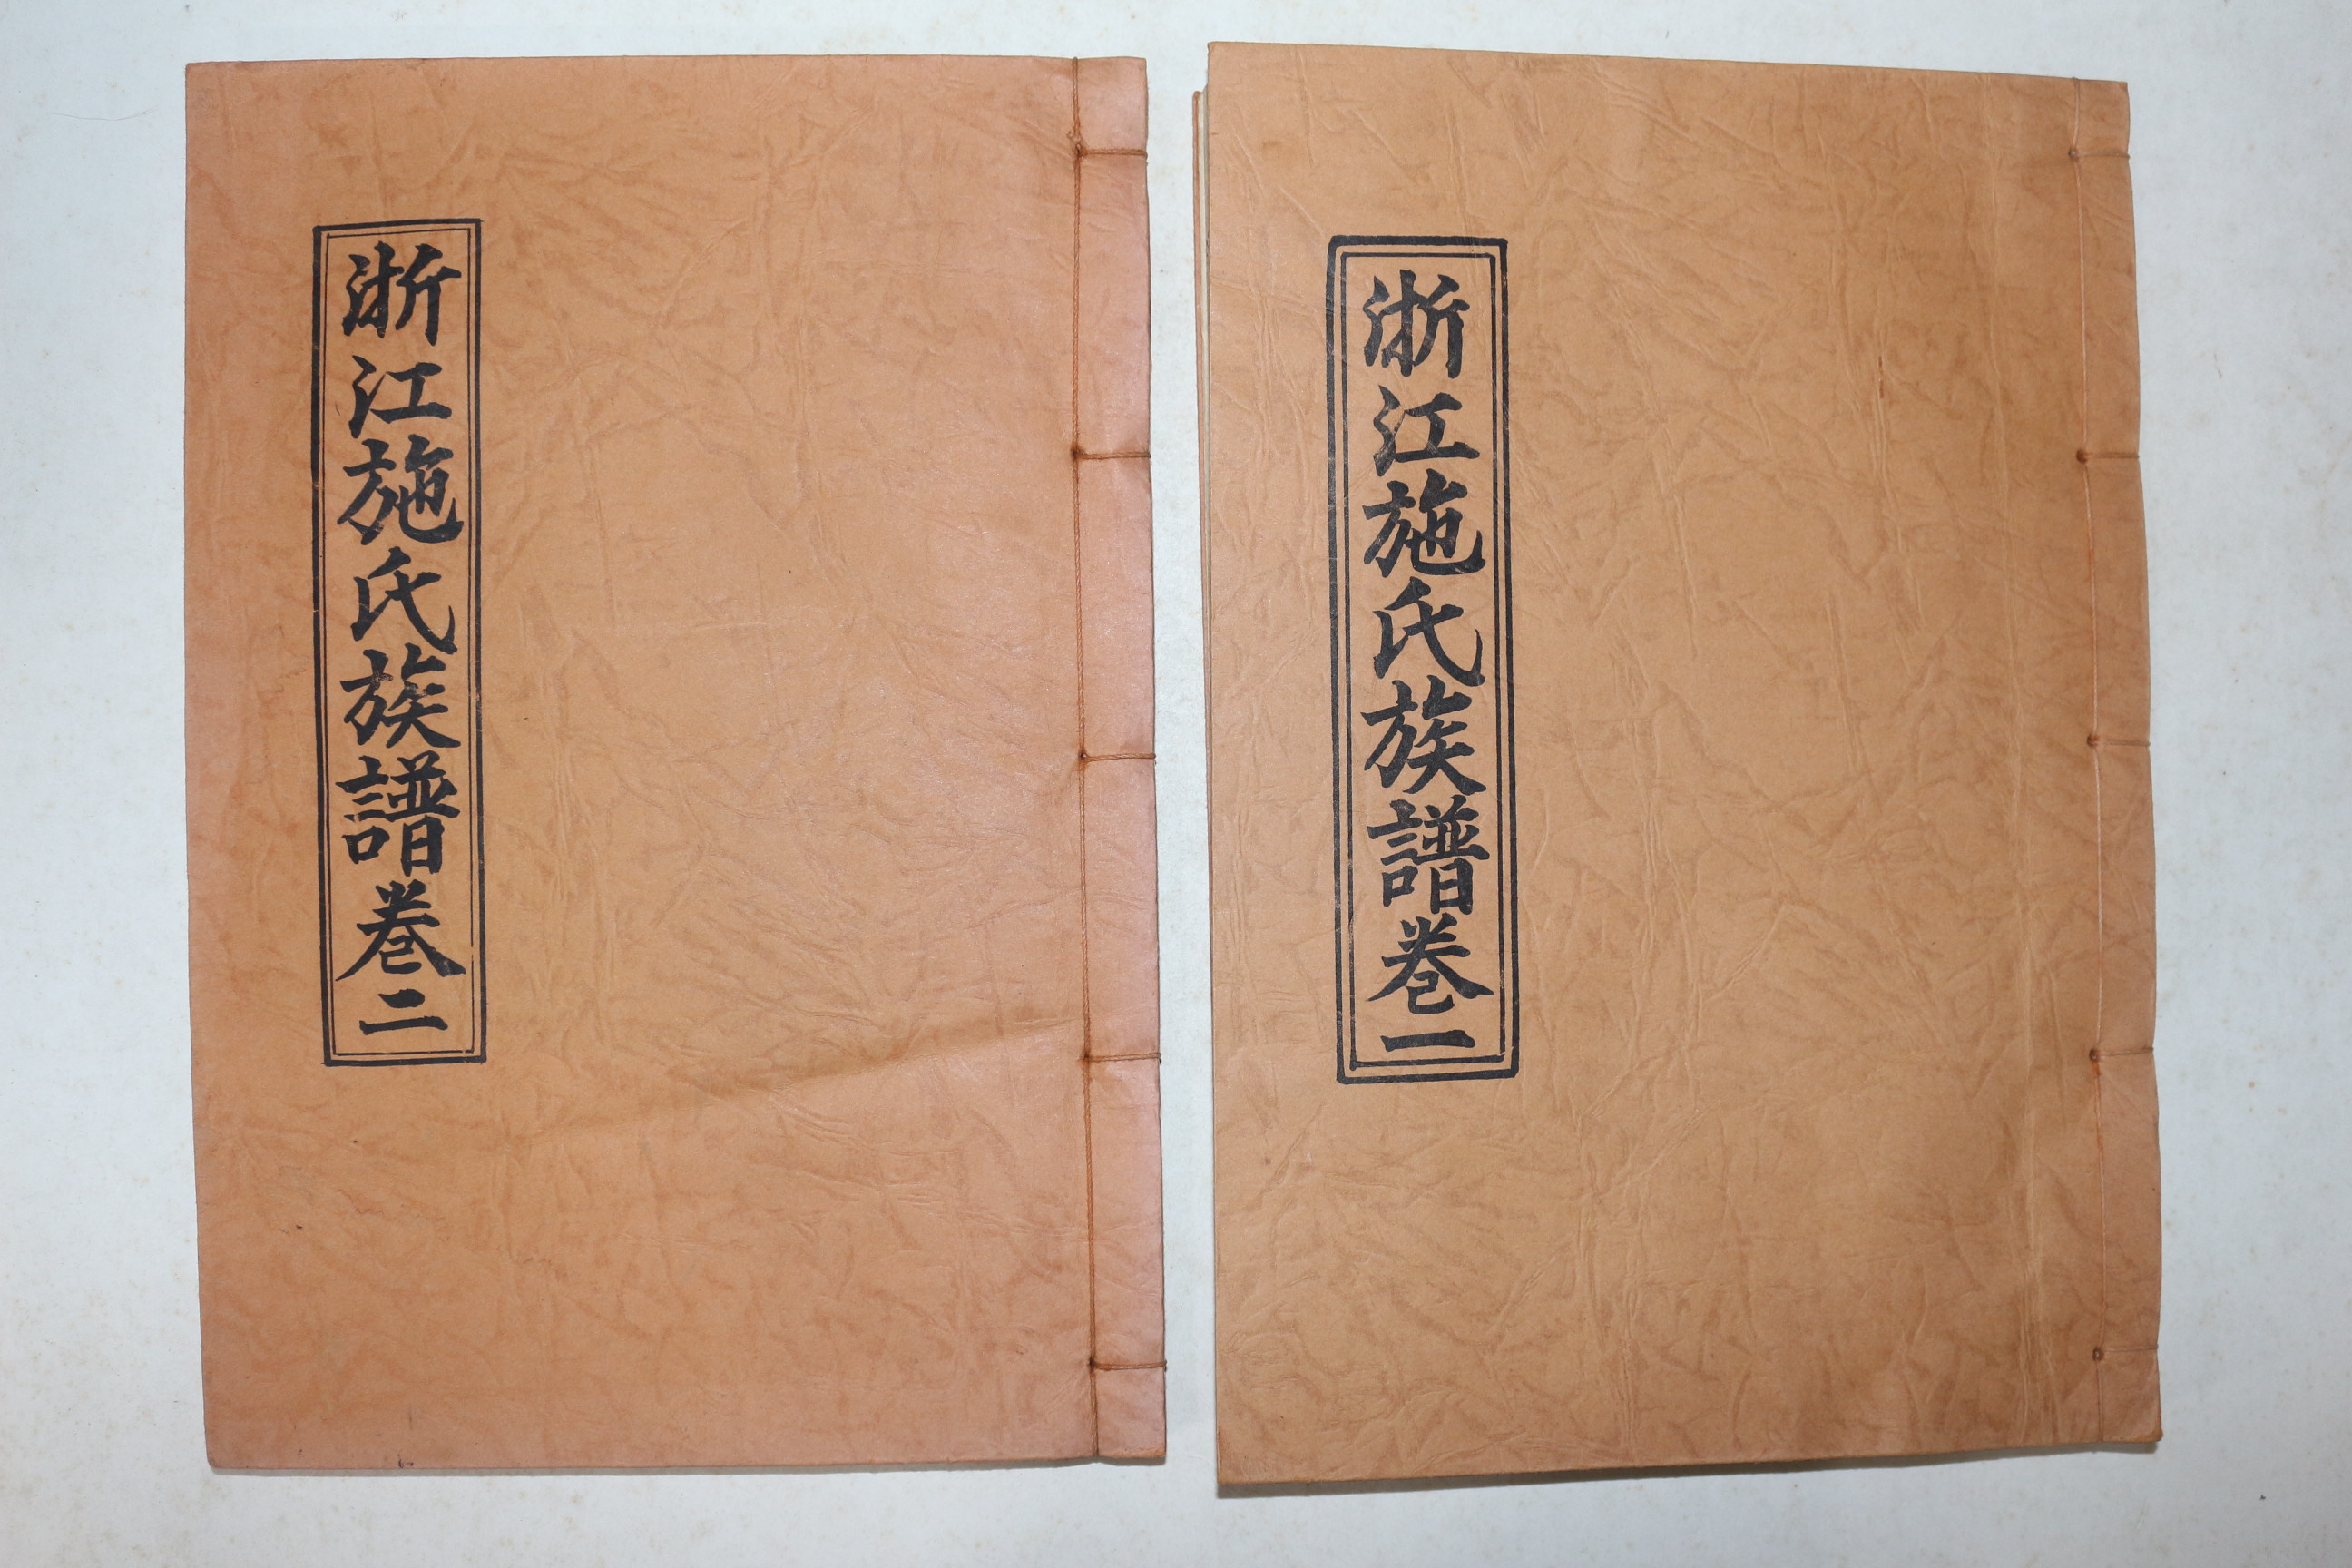 浙江施氏族譜卷一
浙江施氏族譜卷二